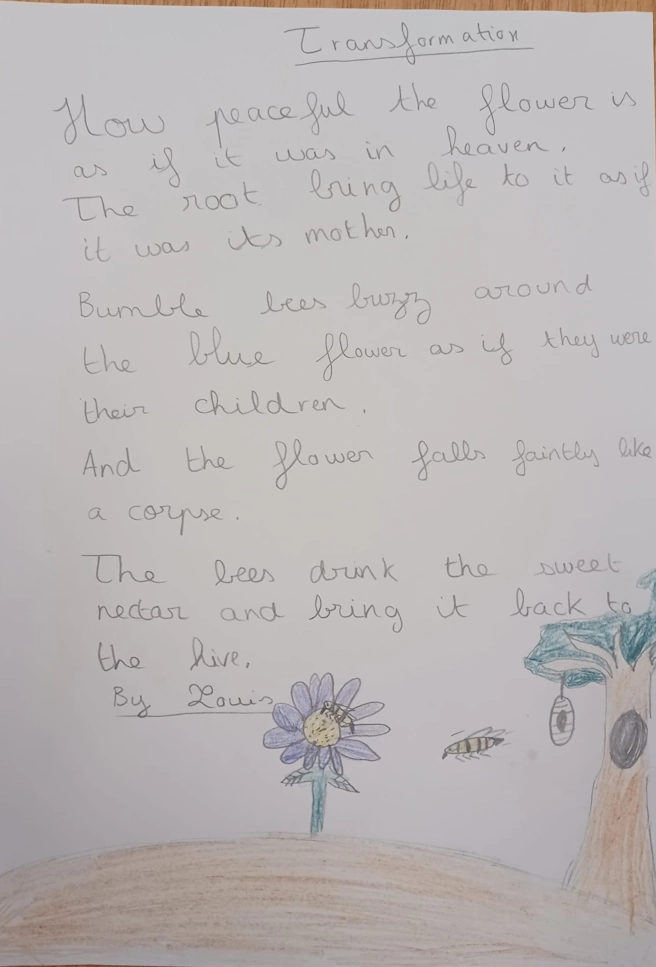 Transformation
How peaceful the flower is
as if it was in heaven.
The root bring life to it as if
it was its mother.
Bumble bees buzz around
the blue flower as if they were
their children.
And the flower falls faintly like
a corpse.
The bees drink the sweet
nectar and bring it back to
the hive.
By Louis